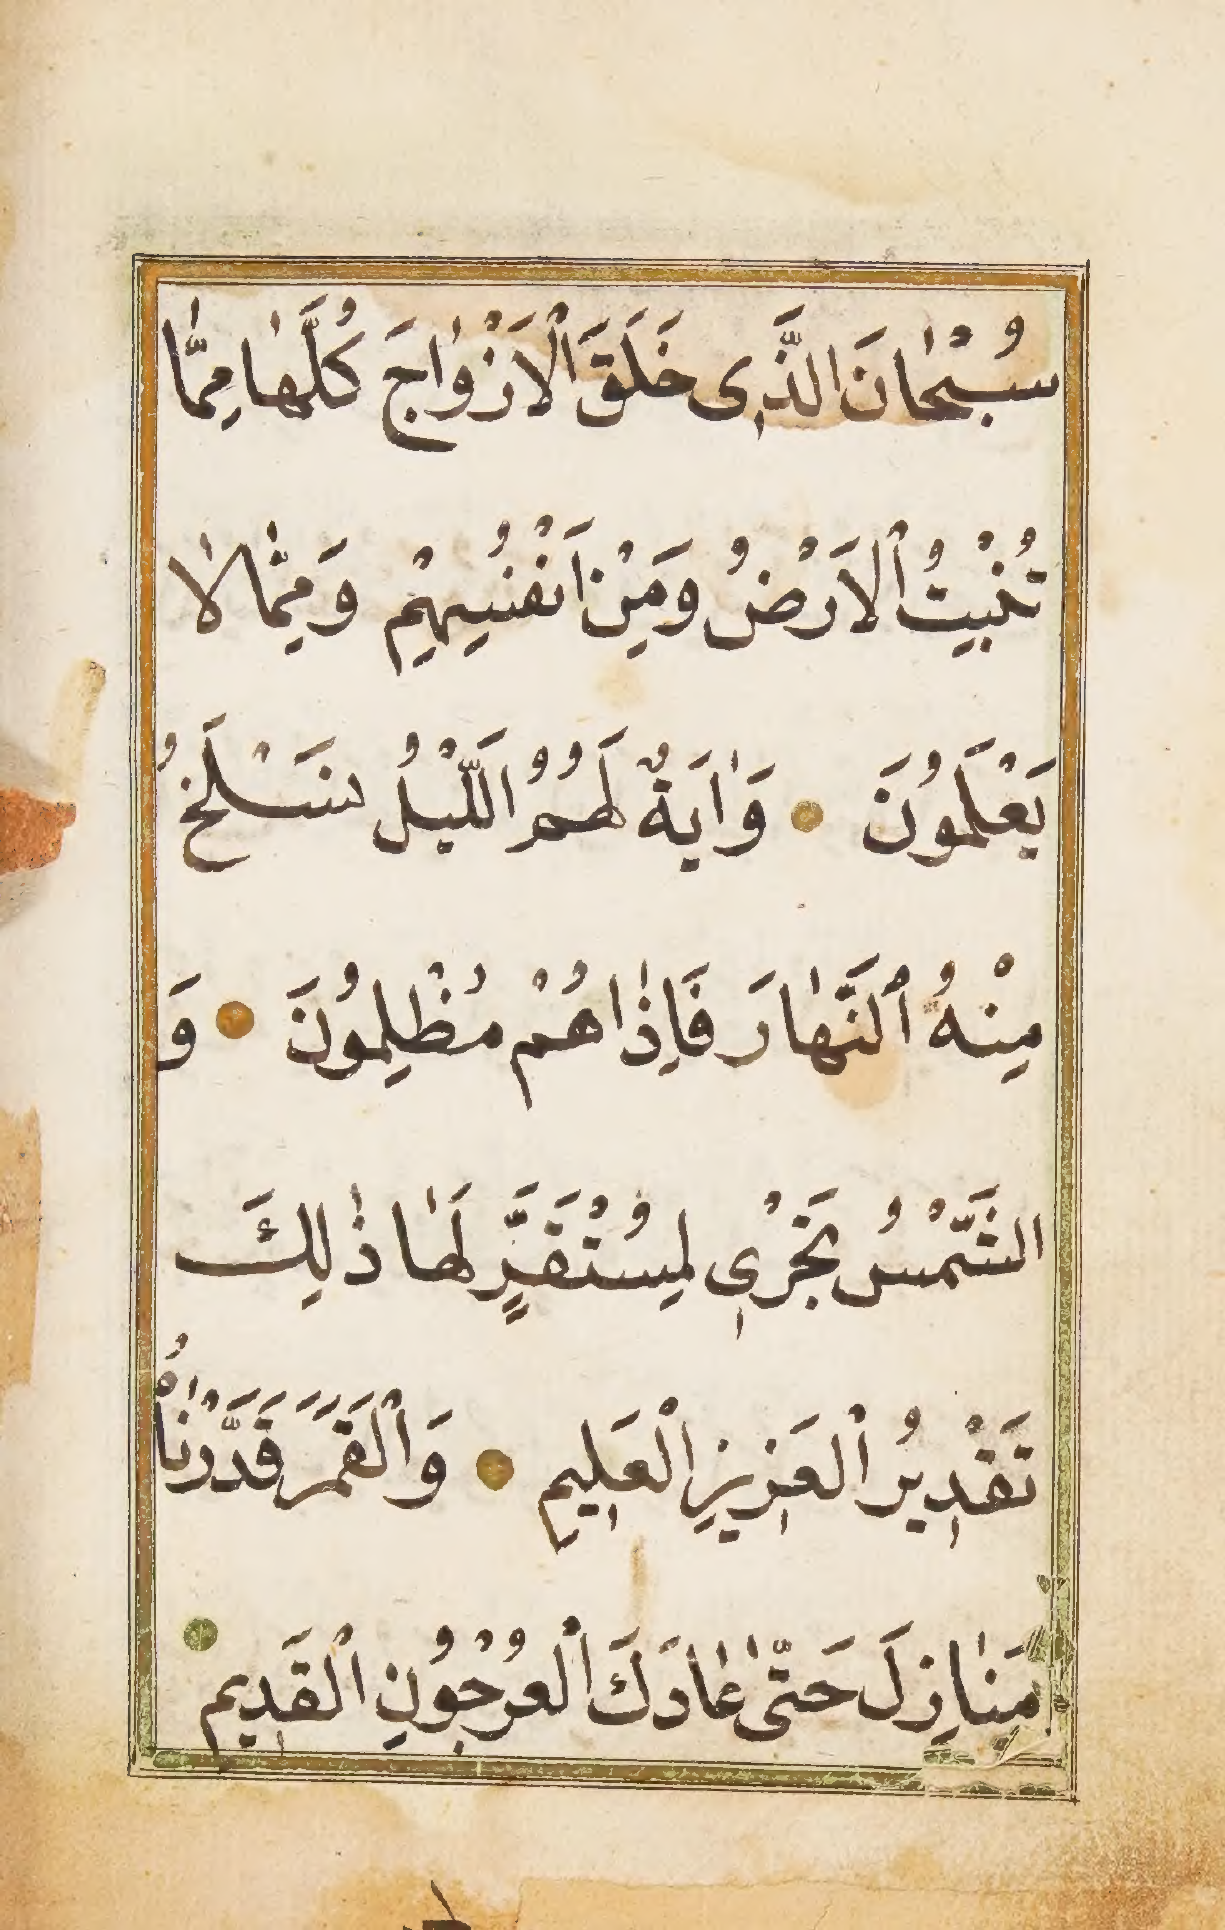 سُبْحٰانَ الَّذٖى خَلَقَ الْاَزْوٰاجَ كُلَّهٰا مِمّٰا
تُنْبِتُ الْاَرْضُ وَمِنْ اَنْفُسِهِمْ وَمِمّٰا لٰا
يَعْلَمُونَ وَاٰيَةٌ لَهُمُ اللَّيْلُ نَسْلَخُ
مِنْهُ النَّهٰارَ فَاِذٰا هُمْ مُظْلِمُونَ وَ
الشَّمْسُ تَجْرٖى لِمُسْتَقَرٍّ لَهٰا ذٰلِكَ
تَقْدٖيرُ الْعَزٖيزِ الْعَلٖيمِ وَالْقَمَرَ قَدَّرْنٰاهُ
مَنٰازِلَ حَتّٰى عٰادَ كَالْعُرْجُونِ الْقَدٖيمِ